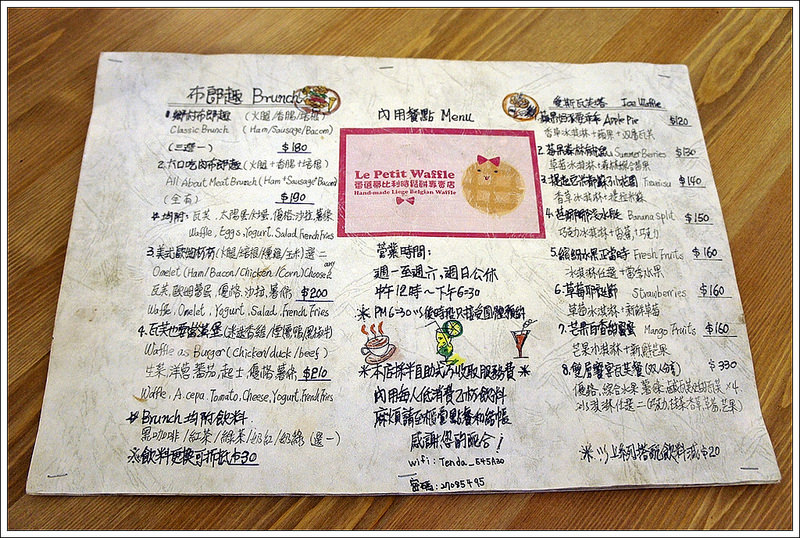 布郎趣 Brunch
1. 鄉村布郎趣 (火腿/香腸/培根)
Classic Brunch (Ham/Sausage/Bacon)
(三選一) $180
2. 大口吃肉布郎趣 (火腿+香腸+培根)
All About Meat Brunch (Ham+Sausage+Bacon)
(全有) $190
*均附: 瓦芙.太陽蛋/水煮.優格.沙拉.薯條
Waffle, Eggs, Yogurt, Salad, French Fries
3. 美式歐姆 (火腿/培根/燻雞/玉米) 選二
Omelet (Ham/Bacon/Chicken/Corn) Choose 2
瓦芙.歐姆蛋.優格.沙拉.薯條 $200
Waffle, Omelet, Yogurt, Salad, French Fries
4. 瓦芙也要當漢堡
Waffle as Burger (Chicken/duck/beef)
生菜.洋蔥.蕃茄.起士.優格.薯條 $210
Waffle, Tomato, Cheese, Yogurt, French Fries
* Brunch 均附飲料
黑咖啡/紅茶/綠茶/奶紅/奶綠 (選一)
※飲料更換可折抵$30
內用餐點 Menu
Le Petit Waffle
蛋道哥比利時鬆餅專賣店
Hand-made Liege Belgian Waffle
營業時間:
週一至週六,週日公休
中午12時～下午6:30
※PM6:30以後時段只接受團體預約
※本店採半自助式不收取服務費※
內用每人低消費乙杯飲料
麻煩請至櫃臺點餐和結帳
感謝您的配合!
wifi: Tenda_E45A30
密碼: 27085495
愛斯瓦芙塔 Ice Waffle
1. Apple Pie $120
香草冰淇淋+蘋果+瓦芙
2. 莓果森林 Summer Berries $130
草莓冰淇淋+森林綜合莓果
3. Tiramisu $140
香草冰淇淋+提拉米蘇
4. Banana Split $150
巧克力冰淇淋+香蕉+巧克力
5. 繽紛水果正當時 Fresh Fruits $160
冰淇淋任選+當季水果
6. 草莓 Strawberries $160
草莓冰淇淋+新鮮草莓
7. 芒果百香甜蜜蜜 Mango Fruits $160
芒果冰淇淋+新鮮芒果
8. 瓦芙塔 (双人份) $330
優格.綜合水果.薯條.瓦芙×4
冰淇淋任選二
※以上系列搭配飲料減$20